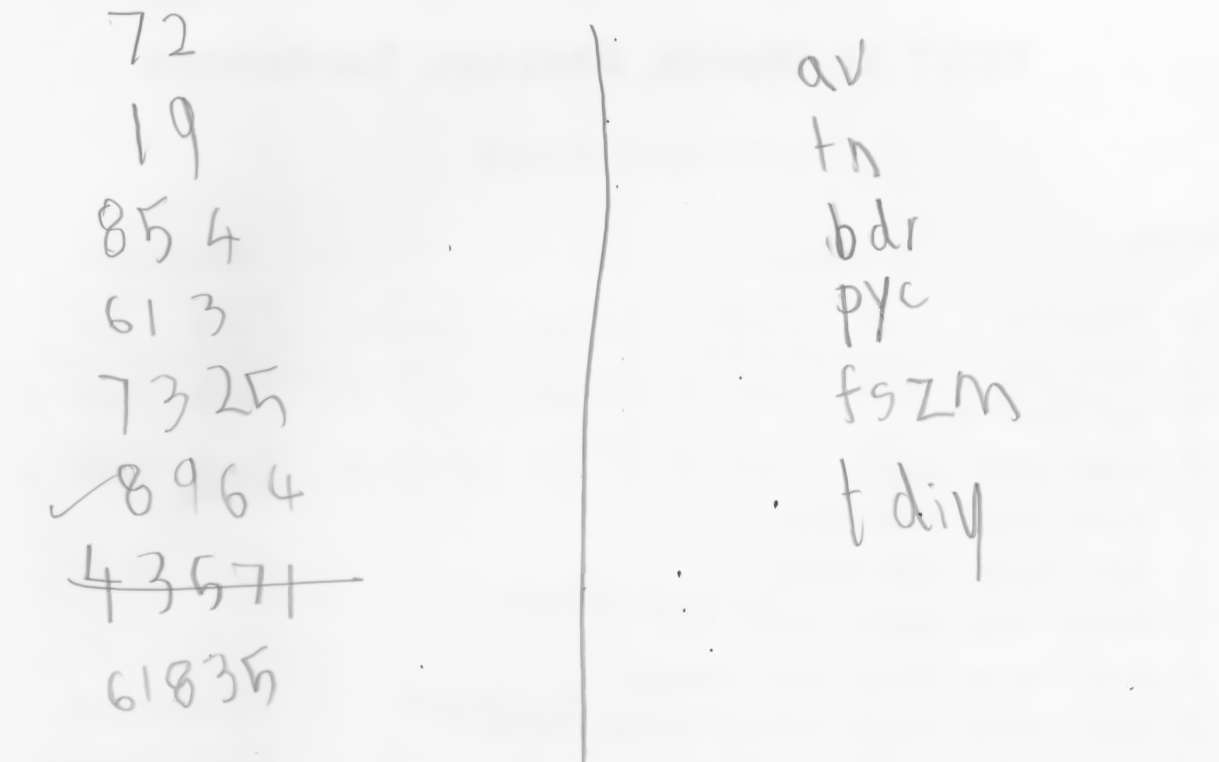 72
19
854
613
7325
8964
43571
61835
av
tn
bdr
pyc
fszm
tdiy